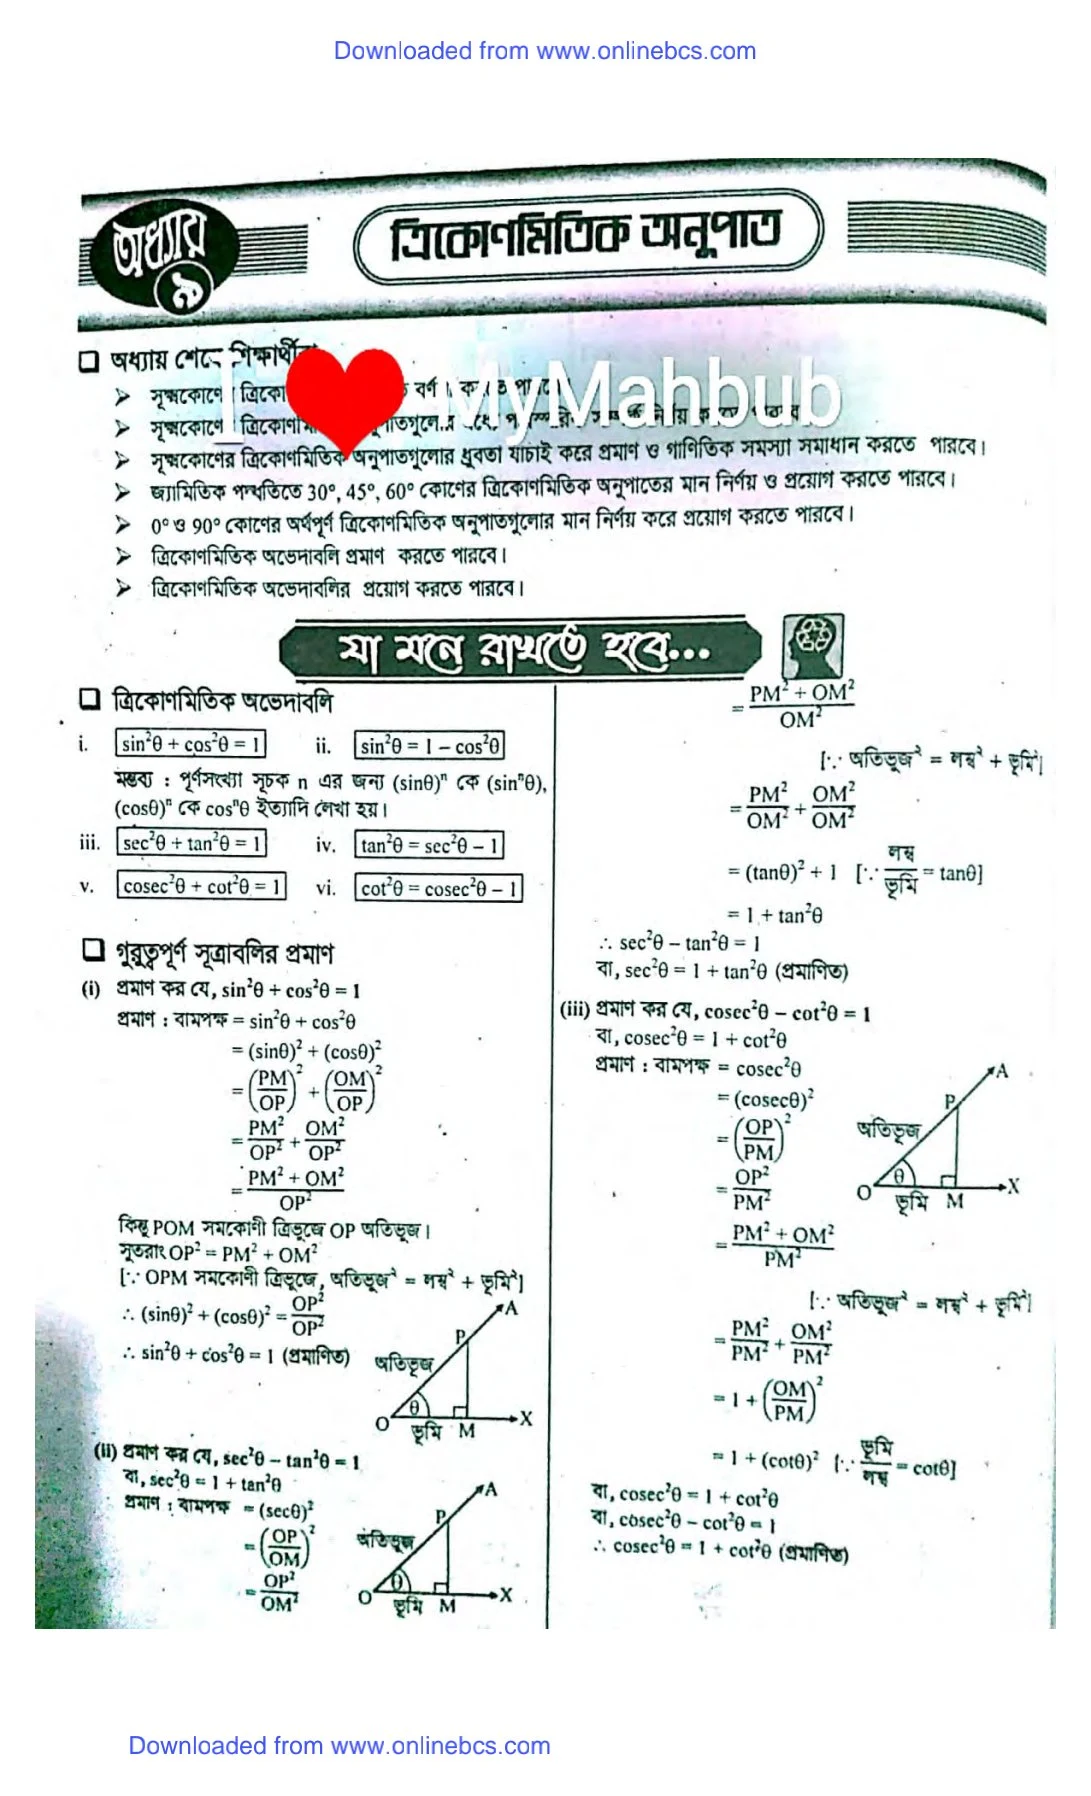 Downloaded from www.onlinebcs.com
অধ্যায় ৯
ত্রিকোণমিতিক অনুপাত
❑ অধ্যায় শেষে শিক্ষার্থীরা
I ❤ MyMahbub
➢ সূক্ষ্মকোণের
➢ সূক্ষ্মকোণের
➢ সূক্ষ্মকোণের ত্রিকোণমিতিক অনুপাতগুলোর ধ্রুবতা যাচাই করে প্রমাণ ও গাণিতিক সমস্যা সমাধান করতে পারবে।
➢ জ্যামিতিক পদ্ধতিতে 30°, 45°, 60° কোণের ত্রিকোণমিতিক অনুপাতের মান নির্ণয় ও প্রয়োগ করতে পারবে।
➢ 0° ও 90° কোণের অর্থপূর্ণ ত্রিকোণমিতিক অনুপাতগুলোর মান নির্ণয় করে প্রয়োগ করতে পারবে।
➢ ত্রিকোণমিতিক অভেদাবলি প্রমাণ করতে পারবে।
➢ ত্রিকোণমিতিক অভেদাবলির প্রয়োগ করতে পারবে।
যা মনে রাখতে হবে...
❑ ত্রিকোণমিতিক অভেদাবলি
i. sin²θ + cos²θ = 1 ii. sin²θ = 1 – cos²θ
মন্তব্য : পূর্ণসংখ্যা সূচক n এর জন্য (sinθ)ⁿ কে (sinⁿθ),
(cosθ)ⁿ কে cosⁿθ ইত্যাদি লেখা হয়।
iii. sec²θ + tan²θ = 1 iv. tan²θ = sec²θ – 1
v. cosec²θ + cot²θ = 1 vi. cot²θ = cosec²θ – 1
❑ গুরুত্বপূর্ণ সূত্রাবলির প্রমাণ
(i) প্রমাণ কর যে, sin²θ + cos²θ = 1
প্রমাণ : বামপক্ষ = sin²θ + cos²θ
= (sinθ)² + (cosθ)²
= (PM/OP)² + (OM/OP)²
= PM²/OP² + OM²/OP²
= (PM² + OM²)/OP²
কিন্তু POM সমকোণী ত্রিভুজে OP অতিভুজ।
সুতরাং OP² = PM² + OM²
[∵ OPM সমকোণী ত্রিভুজে, অতিভুজ² = লম্ব² + ভূমি²]
∴ (sinθ)² + (cosθ)² = OP²/OP²
∴ sin²θ + cos²θ = 1 (প্রমাণিত)
A
P
অতিভুজ
θ
O ভূমি M X
(ii) প্রমাণ কর যে, sec²θ – tan²θ = 1
বা, sec²θ = 1 + tan²θ
প্রমাণ : বামপক্ষ = (secθ)²
= (OP/OM)²
= OP²/OM²
A
P
অতিভুজ
θ
O ভূমি M X
= (PM² + OM²)/OM²
[∵ অতিভুজ² = লম্ব² + ভূমি²]
= PM²/OM² + OM²/OM²
= (tanθ)² + 1 [∵ লম্ব/ভূমি = tanθ]
= 1 + tan²θ
∴ sec²θ – tan²θ = 1
বা, sec²θ = 1 + tan²θ (প্রমাণিত)
(iii) প্রমাণ কর যে, cosec²θ – cot²θ = 1
বা, cosec²θ = 1 + cot²θ
প্রমাণ : বামপক্ষ = cosec²θ
= (cosecθ)²
= (OP/PM)²
= OP²/PM²
= (PM² + OM²)/PM²
A
P
অতিভুজ
θ
O ভূমি M X
[∵ অতিভুজ² = লম্ব² + ভূমি²]
= PM²/PM² + OM²/PM²
= 1 + (OM/PM)²
= 1 + (cotθ)² [∵ ভূমি/লম্ব = cotθ]
বা, cosec²θ = 1 + cot²θ
বা, cosec²θ – cot²θ = 1
∴ cosec²θ = 1 + cot²θ (প্রমাণিত)
Downloaded from www.onlinebcs.com